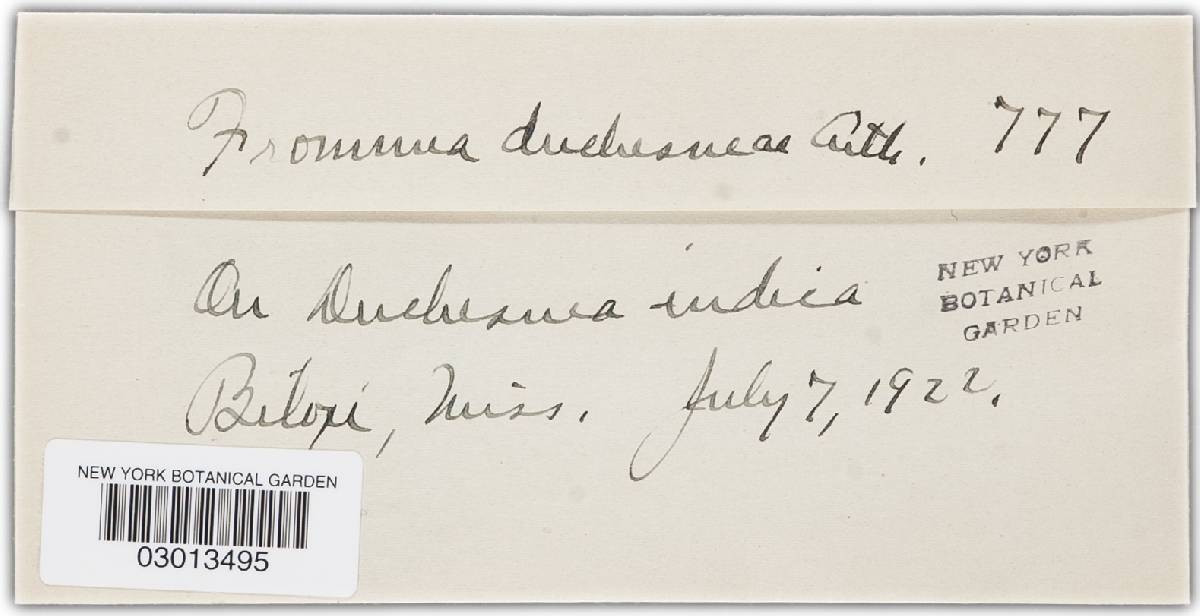 Frommea duchesneae Arth. 777
On Duchesnea indica
NEW YORK
BOTANICAL
GARDEN
Biloxi, Miss. July 7, 1922.
NEW YORK BOTANICAL GARDEN
03013495